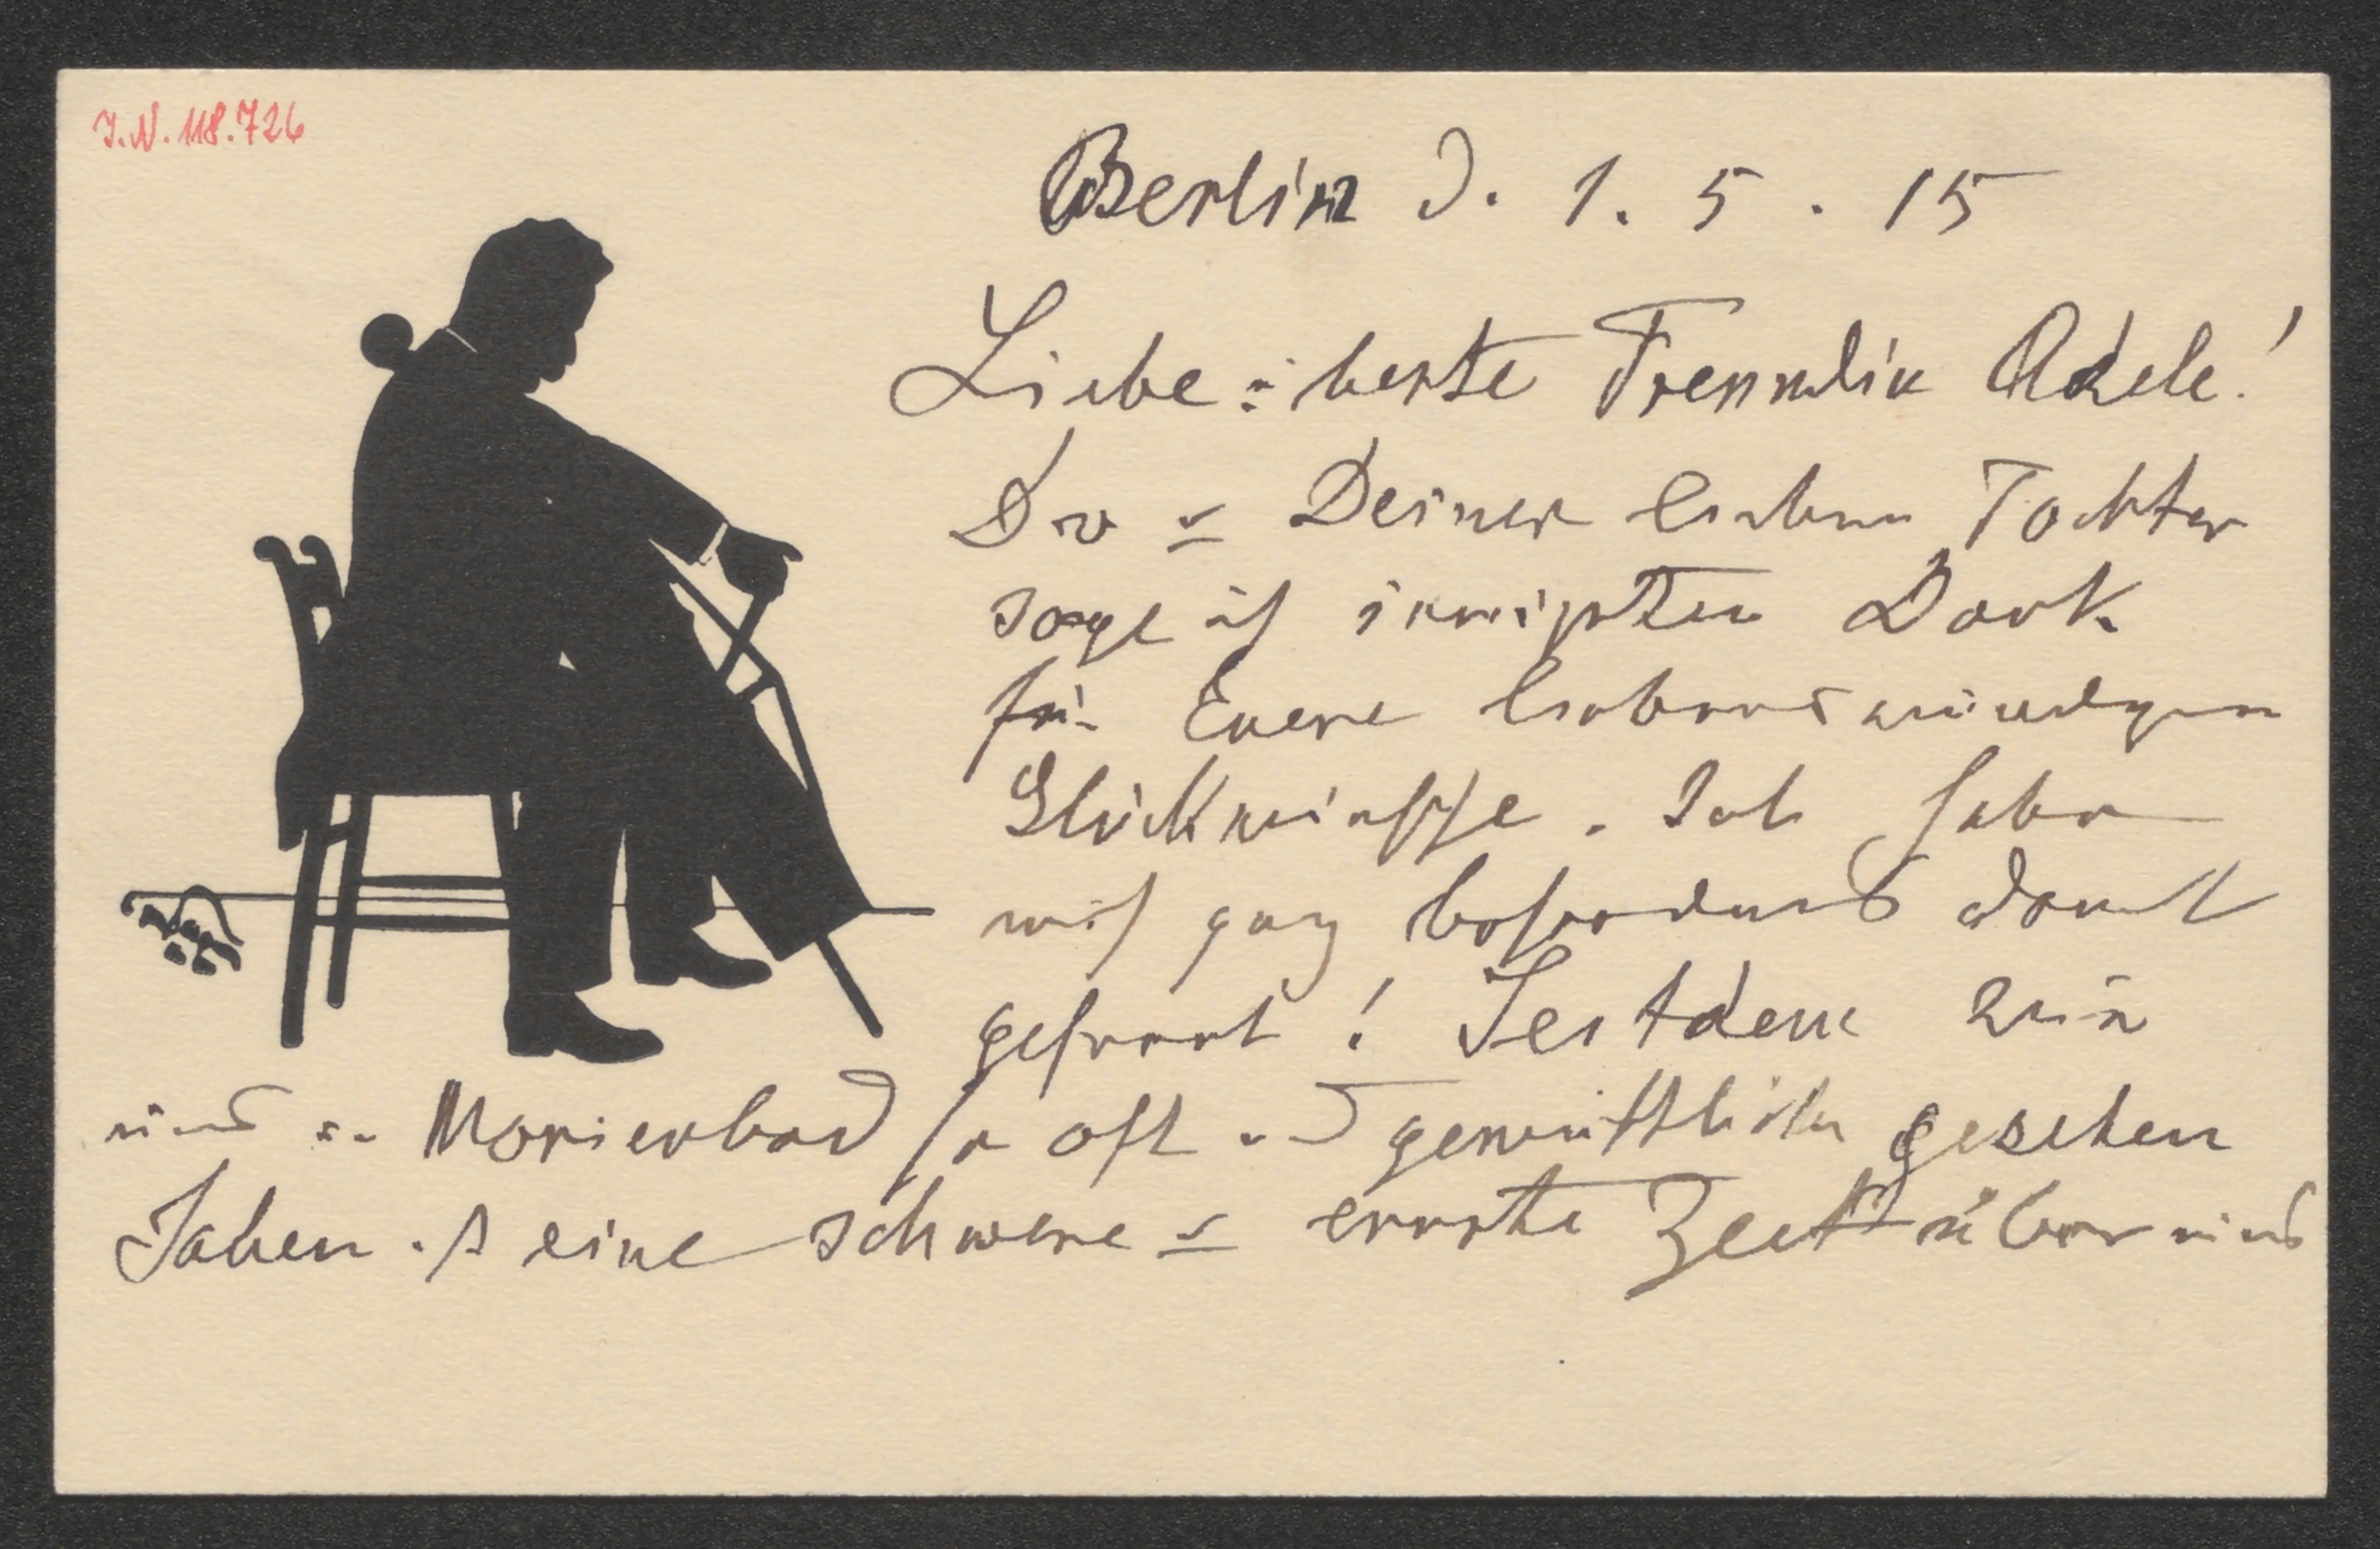 I.N. 118.726
Berlin d. 1. 5. 15
Liebe u. beste Freundin Adele!
Dir u. Deiner lieben Tochter
sage ich innigsten Dank
für Euere liebenswürdigen
Glückwünsche. Ich habe
mich ganz besonders damit
gefreut! Seitdem wir
uns in Marienbad so oft und gemüthlich gesehen
haben, ist eine schwere u. ernste Zeit über uns